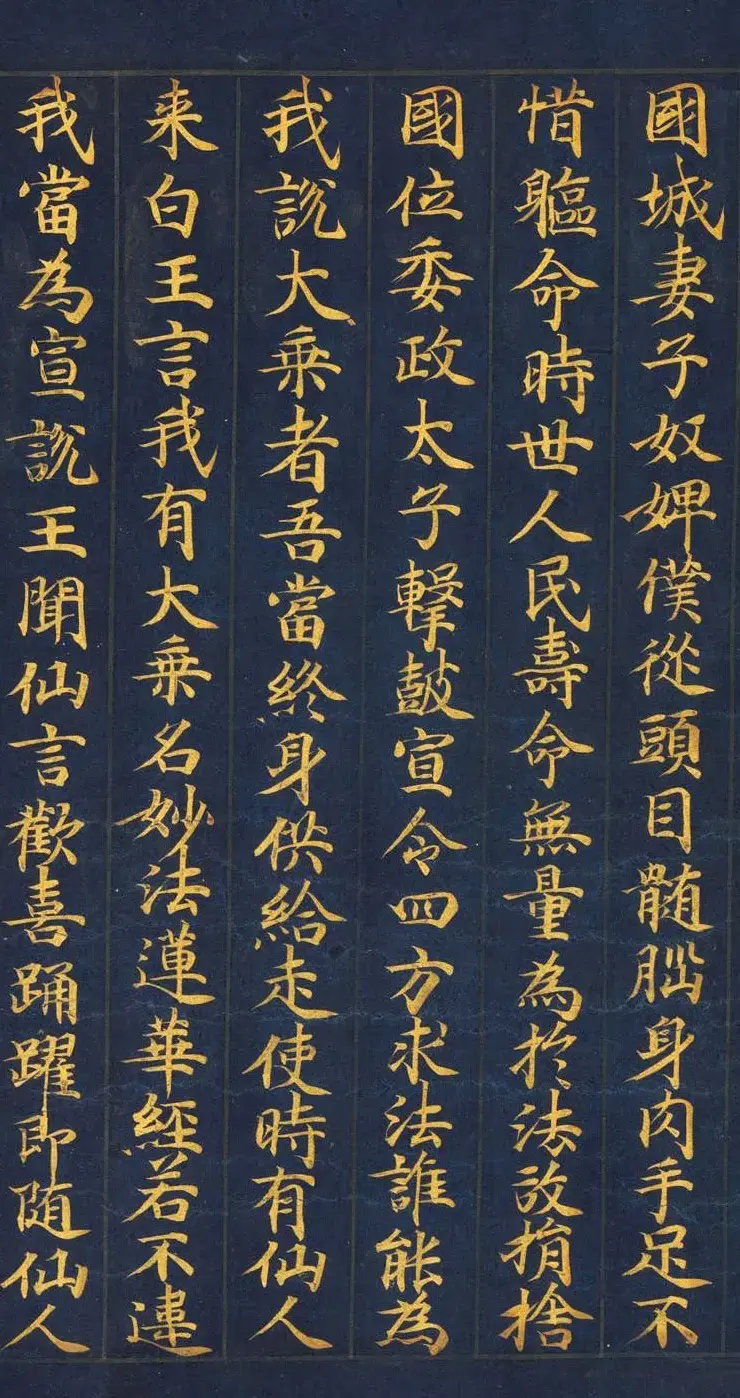 國城妻子奴婢僕從頭目髄腦身肉手足不
惜軀命時世人民壽命無量為於法故捐捨
國位委政太子擊鼓宣令四方求法誰能為
我說大乘者吾當終身供給走使時有仙人
来白王言我有大乘名妙法蓮華經若不違
我當為宣說王聞仙言歡喜踊躍即随仙人